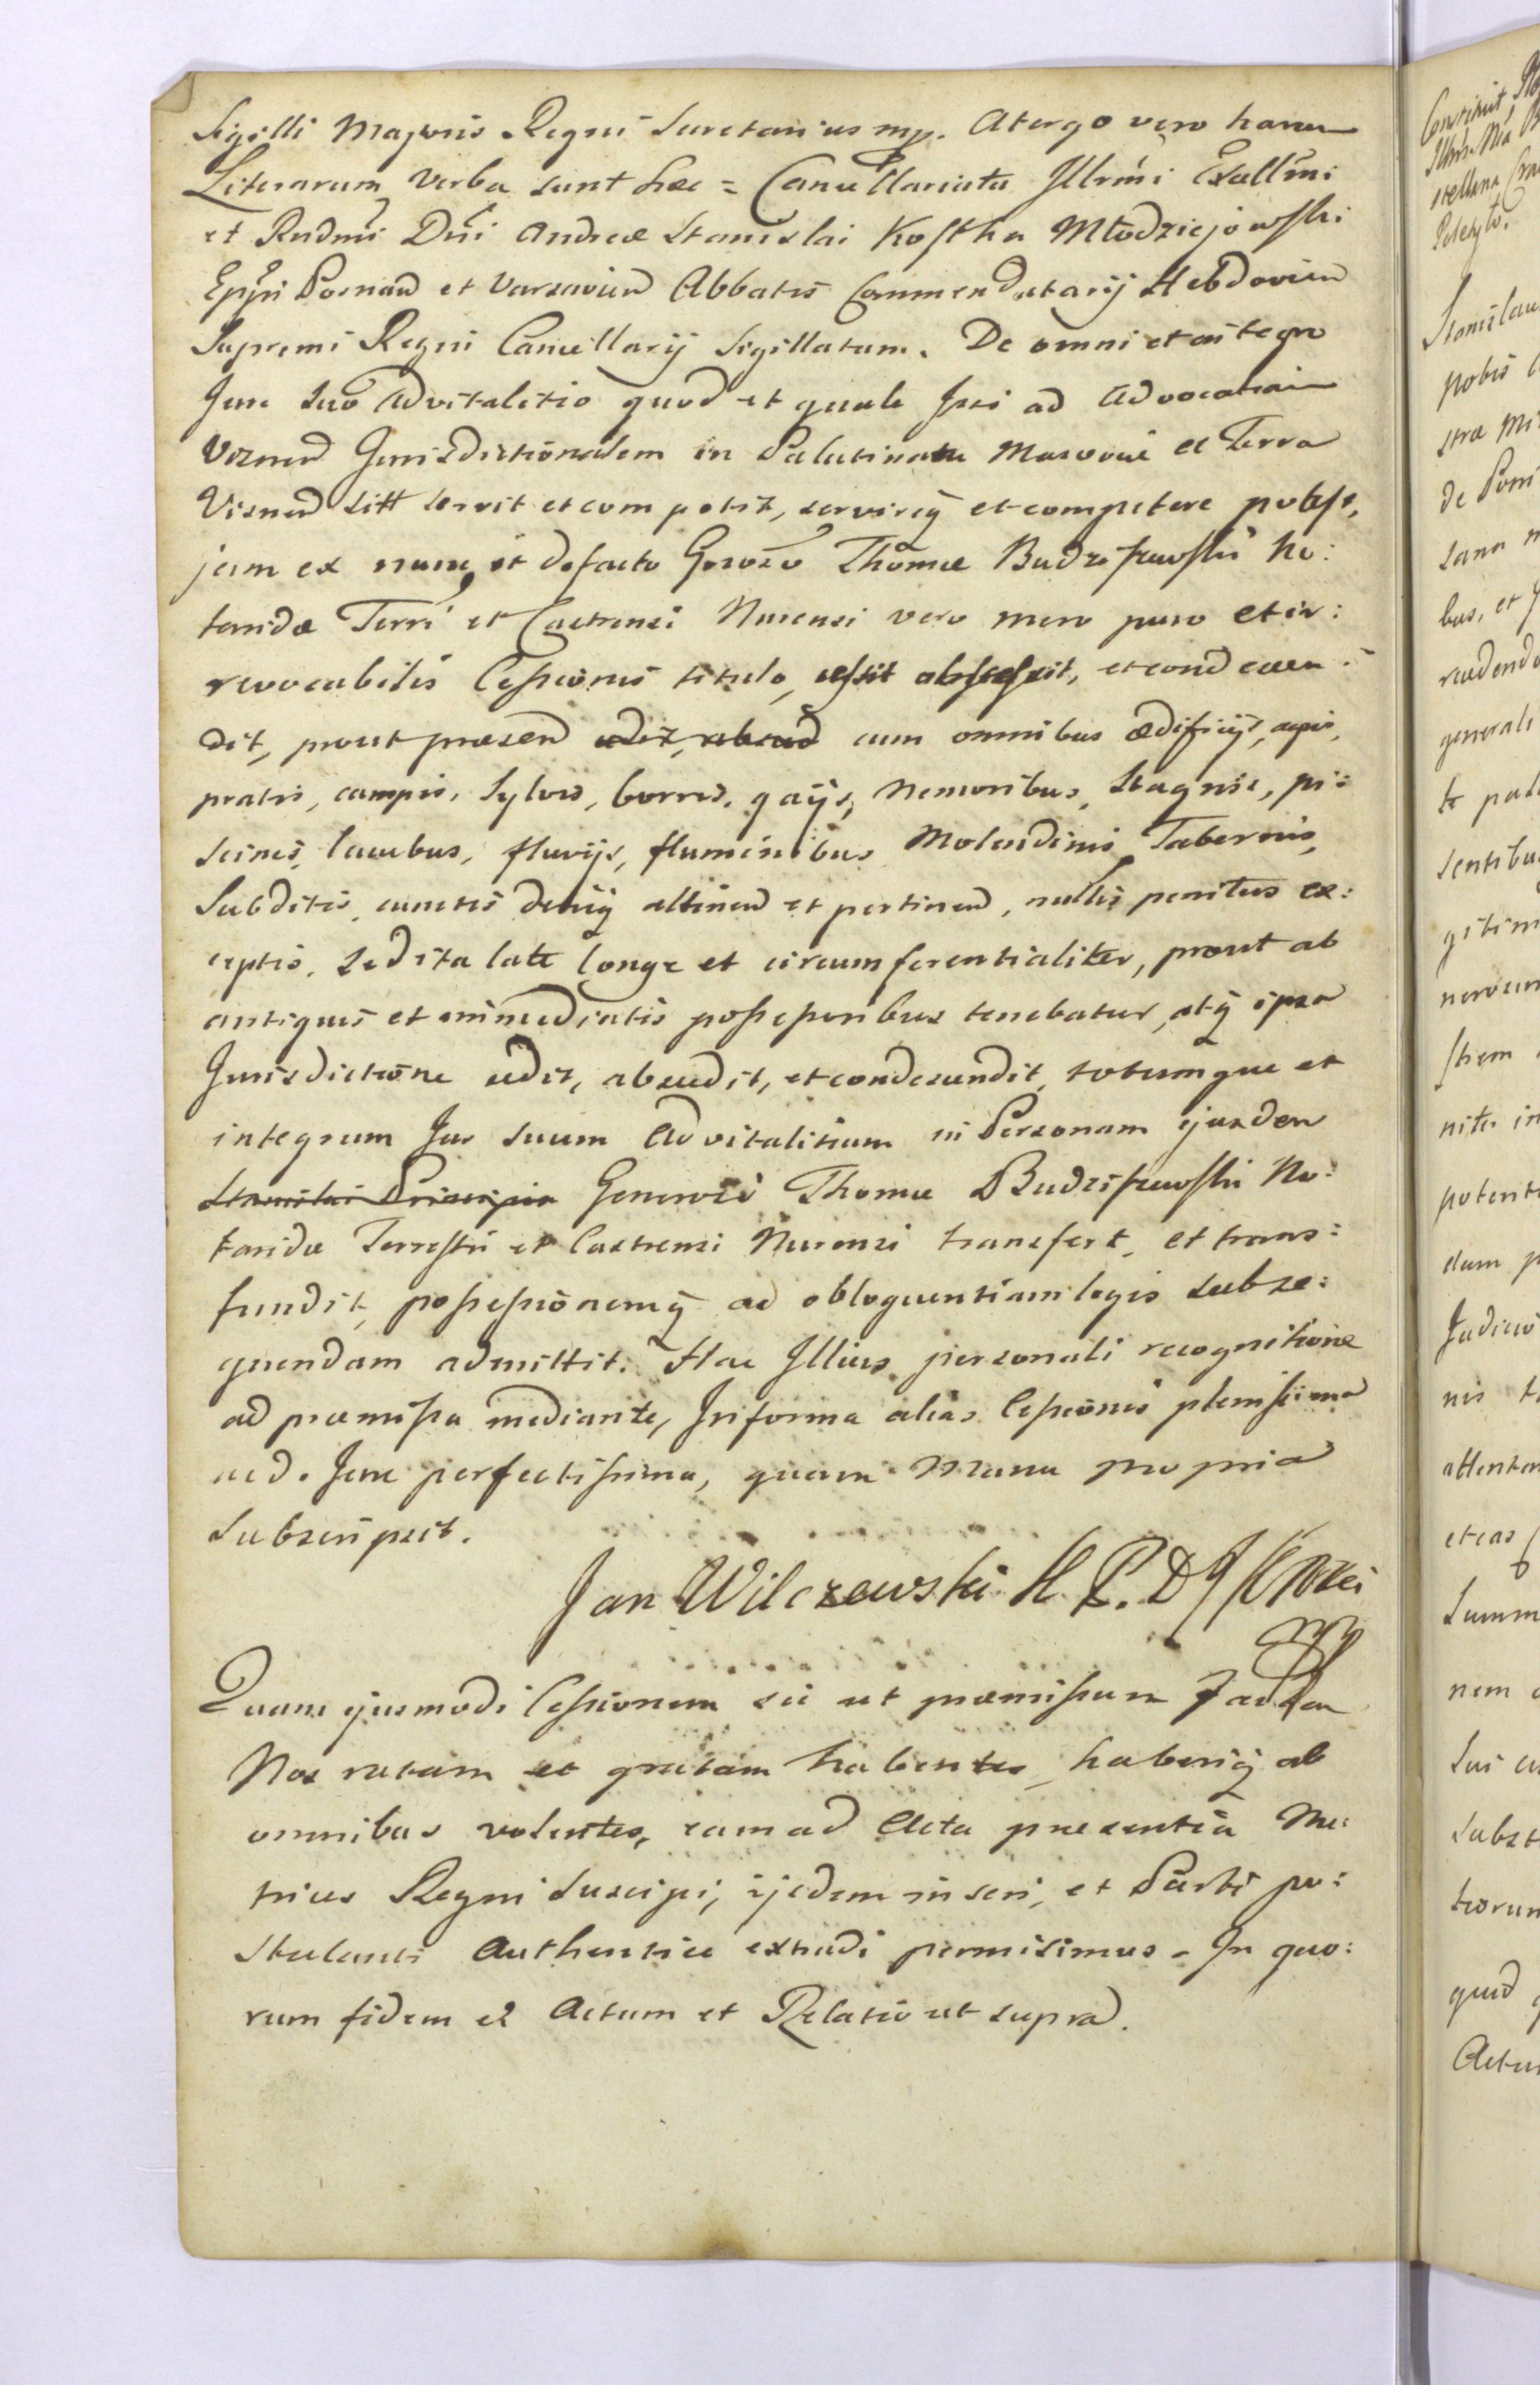 Sigilli Majoris Regni Secretarius mp. Atergo vero harum
Literarum verba sunt hæc = Cancellariatu Jllrmi Excellmi
et Rndmi Dni Andreæ Stanislai Kostka Młodziejowski
Eppi Posnan et Varsavien Abbatis Commendatarij Hebdovien
Supremi Regni Cancellarij Sigillatum. De omni et integro
Jure suo Advitalitio quod et quale Jpsi ad Advocatiam
Viznen Jurisdictionalem in Palatinatu Masoviæ et Terra
Visnen sitt servit et competit, servireq et competere potest,
jam ex nunc et defacto Gnroso Thomæ Budziszewski No:
tarido Terri et Castrensi Nurensi vero mero puro et ir:
revocabilis Cessionis titulo, cessit abscessit, et condescen:
dit, prout præsen cedit, abced cum omnibus ædificijs, agris,
pratis, campis, Sylvis, borris, gaijs, Nemoribus, Stagnis, pi:
scinis, lacubus, fluvijs, fluminibus Molendinis Tabernis,
Subditis, cunctis deniq attinen et pertinen, nullis penitus ex:
ceptis, sed ita late longe et circumferentialiter, prout ab
antiquis et immediatis possessoribus tenebatur, atq ipsa
Jurisdictione cedit, abscedit, et condescendit, totumque et
integrum Jus suum Advitalitium in Personam ejusdem
Generosi Thomæ Budziszewski No:
taridæ Terrestri et Castrensi Nurensi transfert, et trans:
fundit, possessionemq ad obloquentiam legis subse:
quendam admittit. Hac Jllius personali recognitione
ad præmissa mediante, Jn forma alias Cessionis plenissima
ac d. Jure perfectissima, quam Manu propria
subscripsit.
Jan Wilczewski
Quam ejusmodi Cessionem sic ut præmissum factam
Nos ratam et gratam habentes, haberiq ab
omnibus volentes, eam ad Acta præsentia Me:
trices Regni Suscipi, ijsdem inseri, et Parti po:
stulanti Authentice extradi permisimus. Jn quo:
rum fidem et Actum et Relatio ut supra.
Stanislau
nobis
stræ
de
bus, et
generali
sentibus
potent
nis
Summ
nem
quid